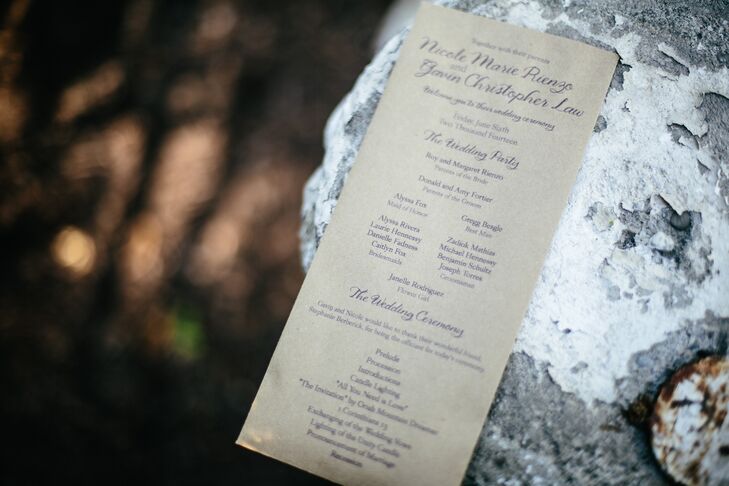 Together with their parents
Nicole Marie Rienzo
and
Gavin Christopher Law
Welcome you to their wedding ceremony
Friday, June Sixth
Two Thousand Fourteen
The Wedding Party
Roy and Margaret Rienzo
Parents of the Bride
Donald and Amy Fortier
Parents of the Groom
Alyssa Fox
Maid of Honor
Gregg Beagle
Best Man
Alyssa Rivera
Laurie Hennessy
Danielle Fadness
Caitlyn Fox
Bridesmaids
Zachek Mathias
Michael Hennessy
Benjamin Schultz
Joseph Torres
Groomsmen
Janelle Rodriguez
Flower Girl
The Wedding Ceremony
Gavin and Nicole would like to thank their wonderful friend,
Stephanie Berberick, for being the officiant for today's ceremony.
Prelude
Procession
Introductions
Candle Lighting
"All You Need is Love"
"The Invitation" by Oriah Mountain Dreamer
1 Corinthians 13
Exchanging of the Wedding Vows
Lighting of the Unity Candle
Pronouncement of Marriage
Recession